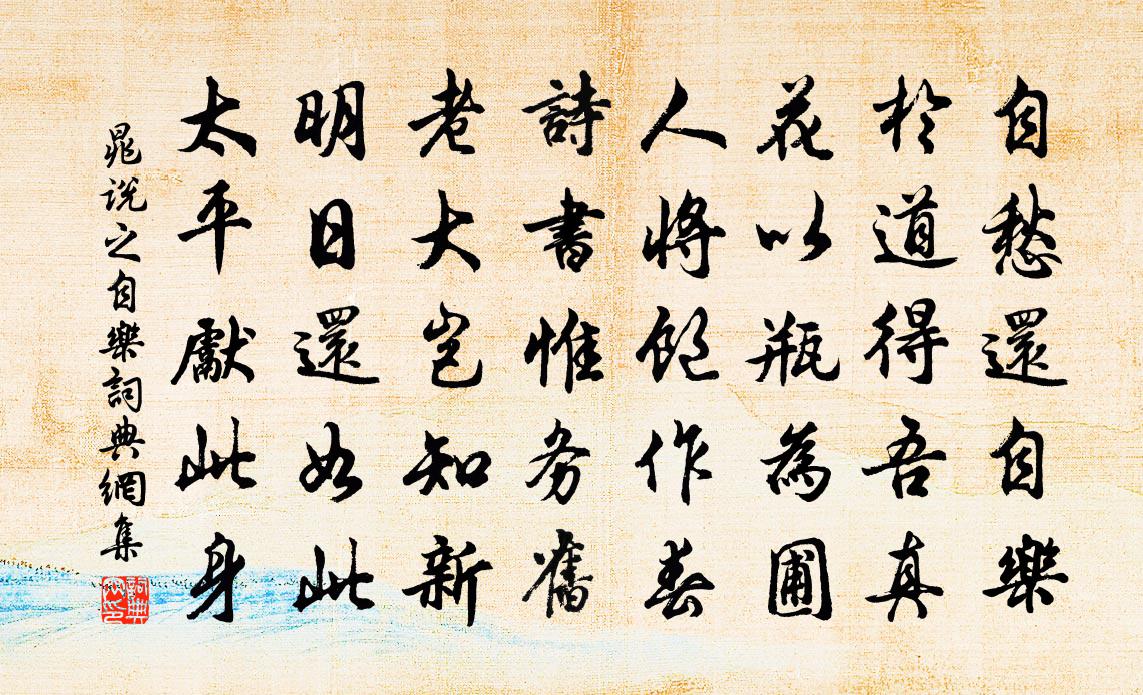 自愁還自樂
於道得吾真
花以瓶為圃
人將飽作春
詩書惟务舊
老大豈知新
明日還如此
太平獻此身
晁說之自樂詞典網集
詞典網印